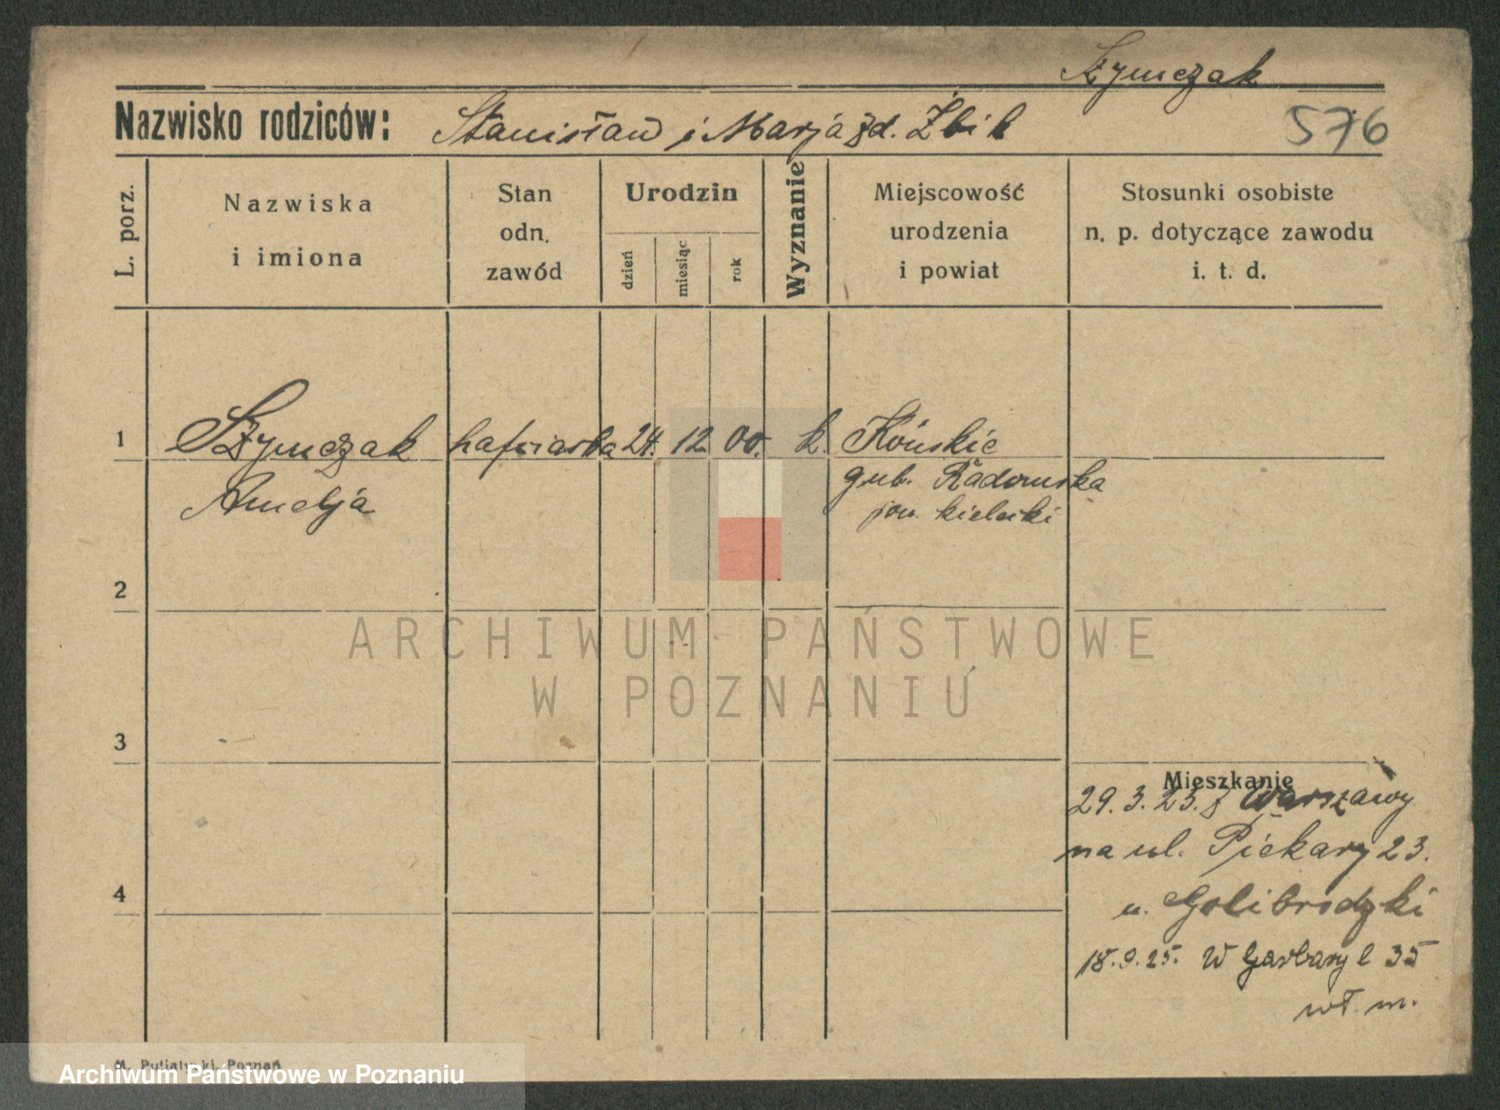 Szymczak
Nazwisko rodziców: Stanisław i Marja zd. Żbik
576
L. porz.
Nazwiska
i imiona
Stan
odn.
zawód
Urodzin
dzień
miesiąc
rok
Wyznanie
Miejscowość
urodzenia
i powiat
Stosunki osobiste
n. p. dotyczące zawodu
i. t. d.
1 Szymczak hafciarka 24. 12. 00. k. Końskie
Amelja
gub. Radomska
pow. kielecki
2
ARCHIWUM PAŃSTWOWE
W POZNANIU
3
Mieszkanie
29.3.23. z Warszawy
na ul. Piekary 23.
4
u. Golibrodzki
18.9.25. W Garbary 35
wł. m.
Poznań
Archiwum Państwowe w Poznaniu